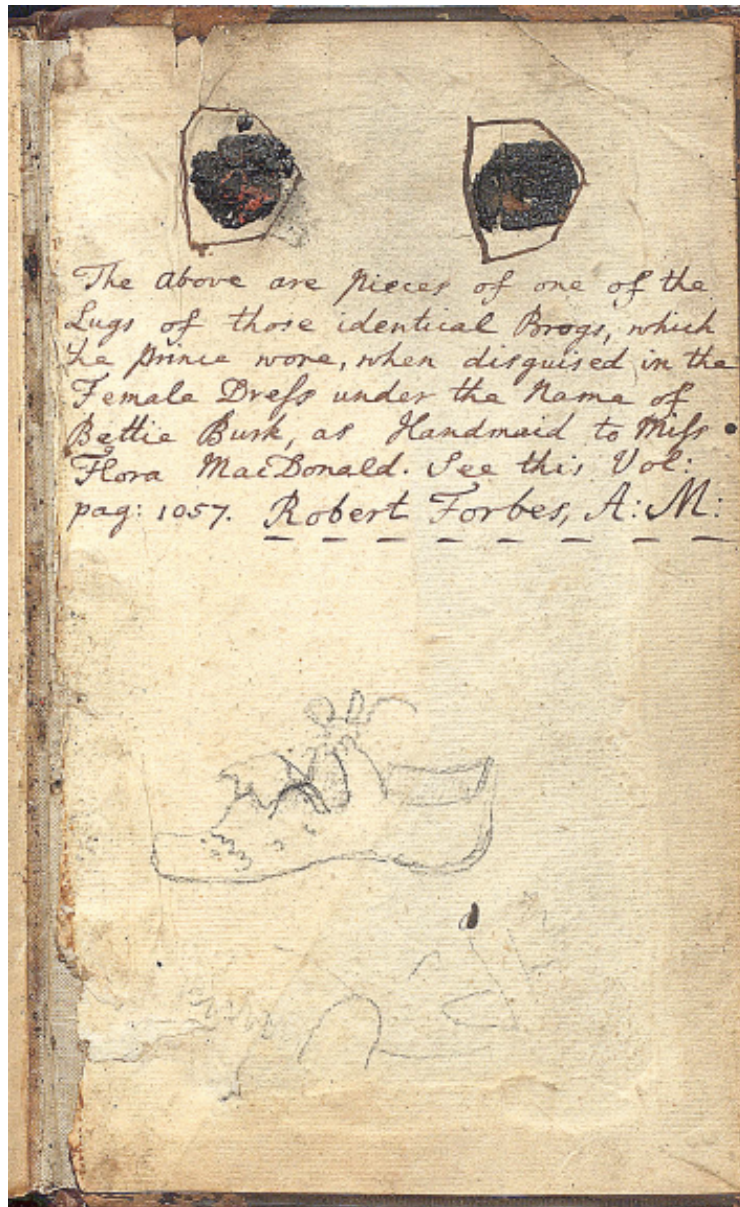 The above are pieces of one of the
Lugs of those identical Brogs, which
the Prince wore, when disguised in the
Female Dreſs under the Name of
Bettie Burk, as Handmaid to Miſs
Flora MacDonald. See this Vol:
pag: 1057. Robert Forbes, A: M: